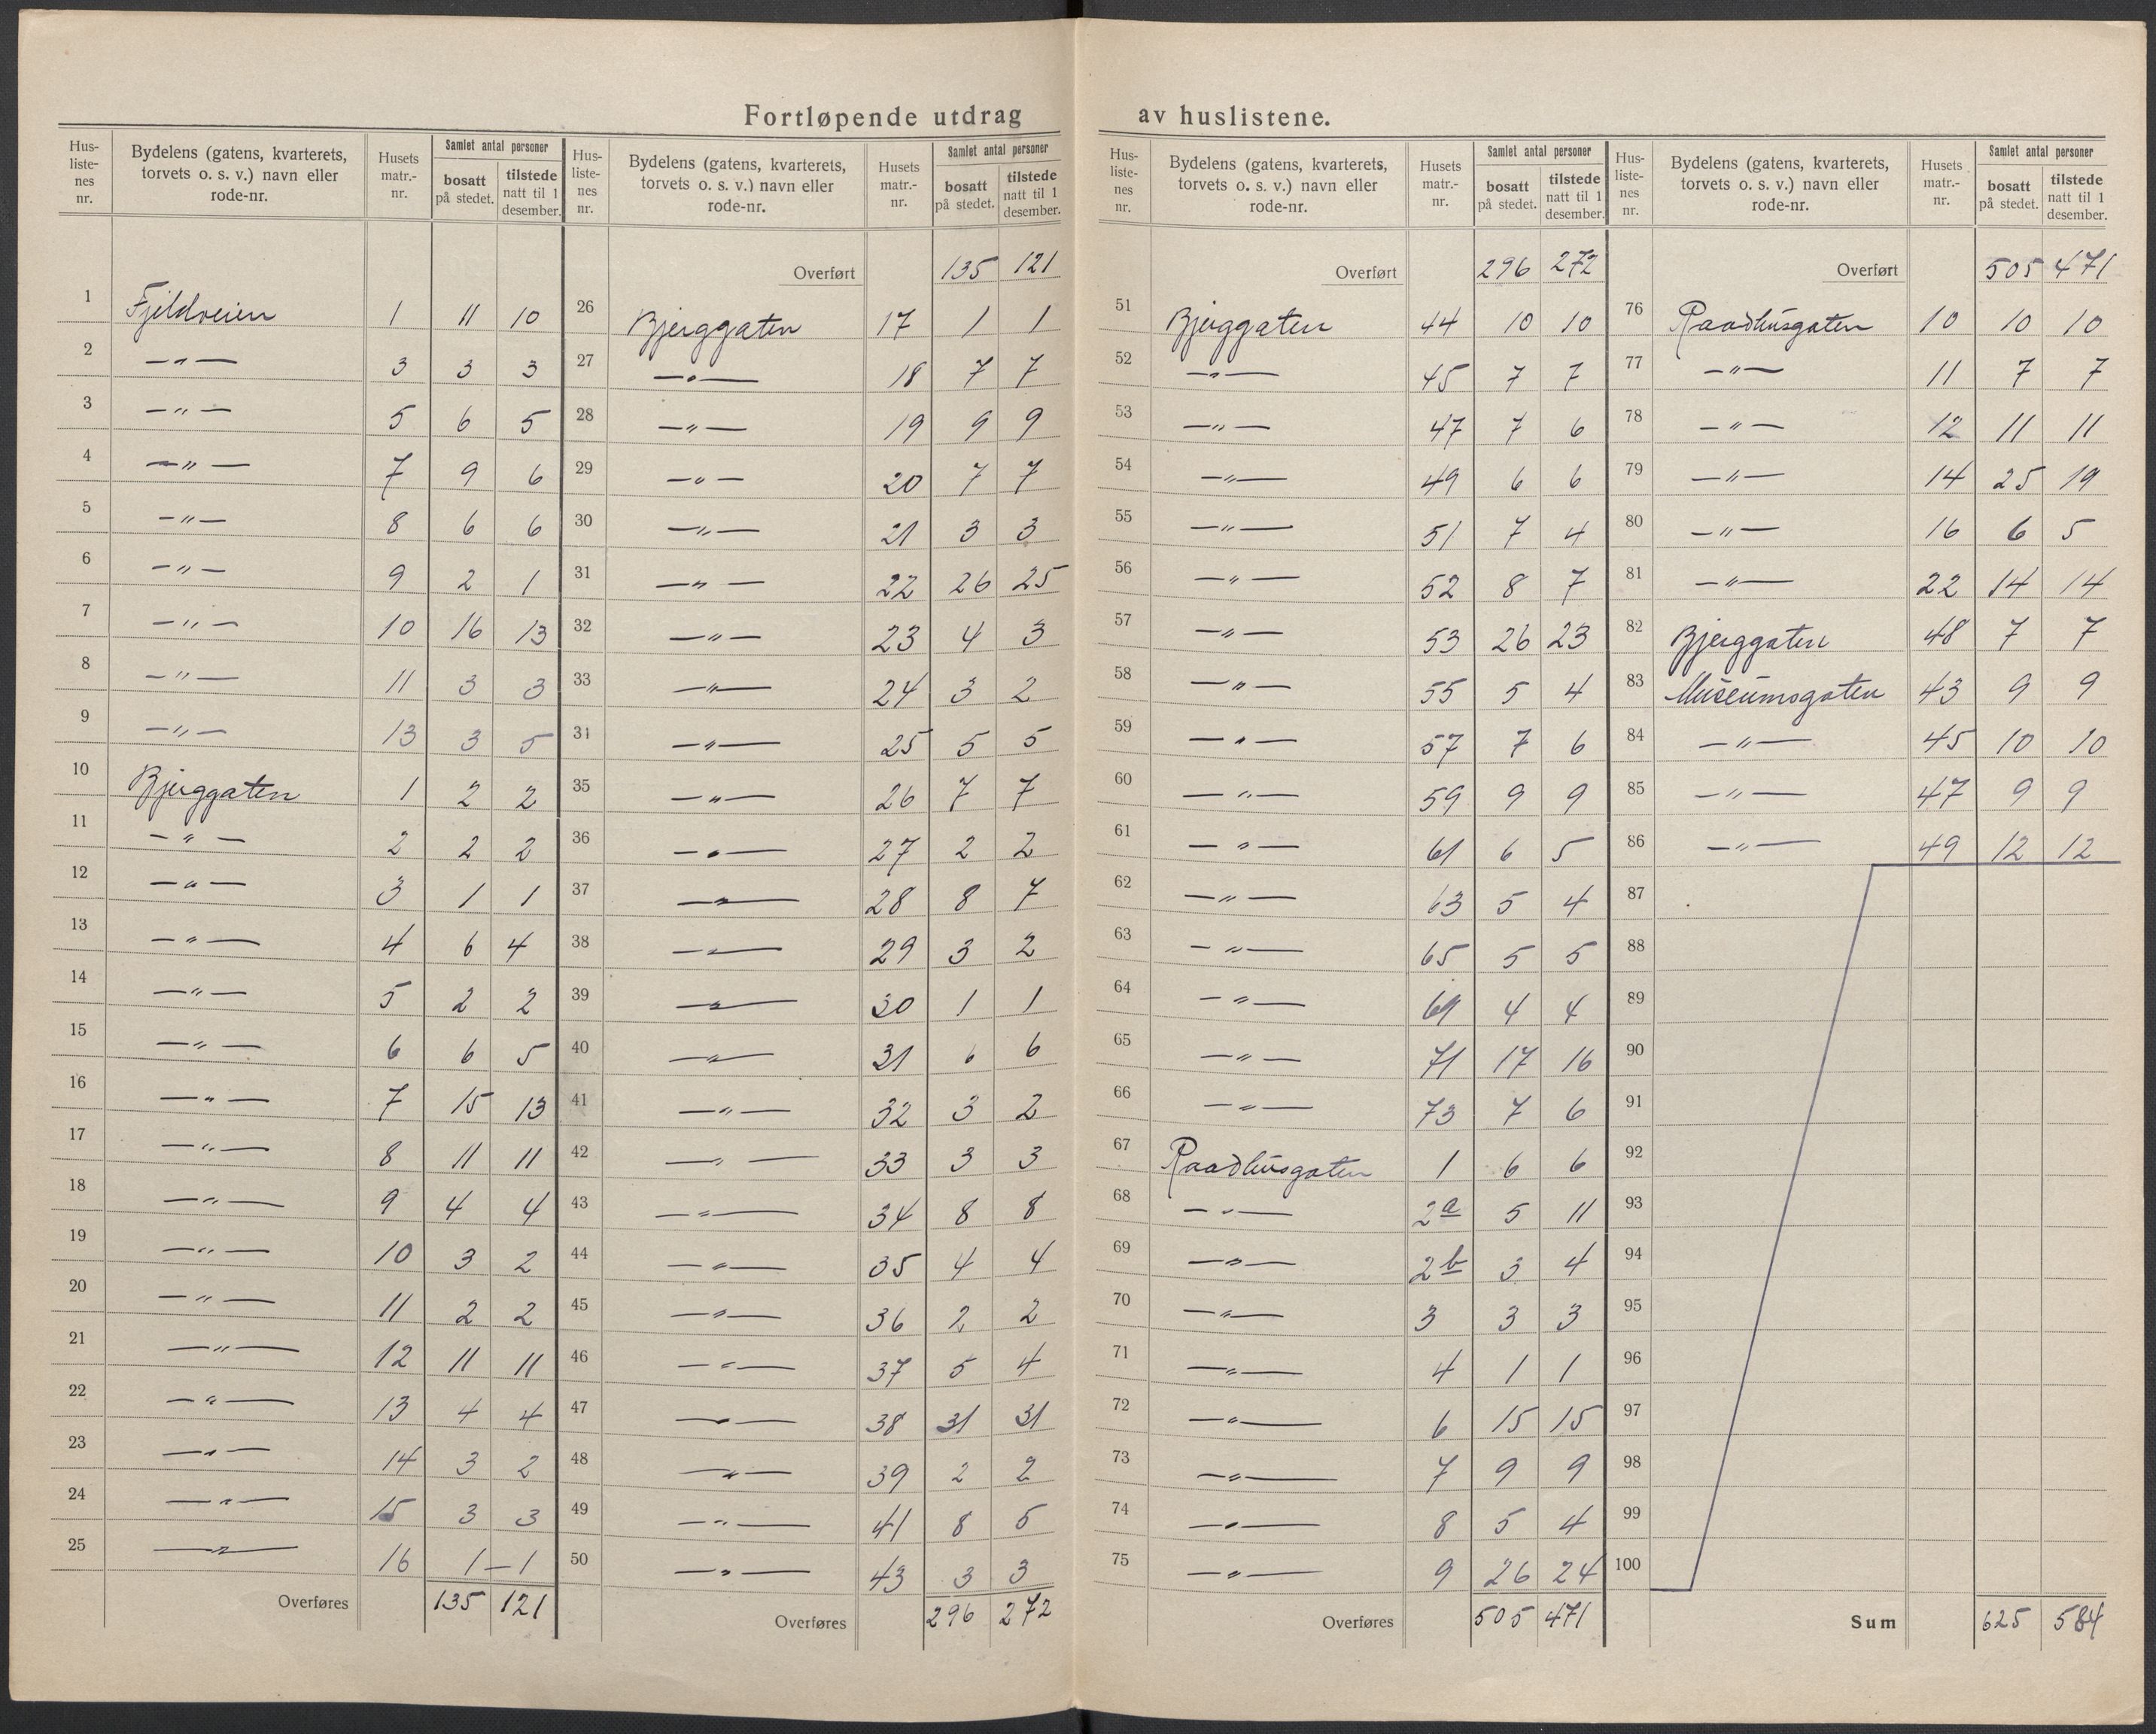 Fortløpende utdrag av huslistene.
Hus-listenes nr. | Bydelens (gatens, kvarterets, torvets o. s. v.) navn eller rode-nr. | Husets matr.-nr. | Samlet antal personer bosatt på stedet. | tilstede natt til 1 desember.
1 Fjeldveien 1 11 10
2 —„— 3 3 3
3 —„— 5 6 5
4 —„— 7 9 6
5 —„— 8 6 6
6 —„— 9 2 1
7 —„— 10 16 13
8 —„— 11 3 3
9 —„— 13 3 5
10 Bjerggaten 1 2 2
11 —„— 2 2 2
12 —„— 3 1 1
13 —„— 4 6 4
14 —„— 5 2 2
15 —„— 6 6 5
16 —„— 7 15 13
17 —„— 8 11 11
18 —„— 9 4 4
19 —„— 10 3 2
20 —„— 11 2 2
21 —„— 12 11 11
22 —„— 13 4 4
23 —„— 14 3 2
24 —„— 15 3 3
25 —„— 16 1 — 1
Overføres 135 121
Hus-listenes nr. | Bydelens (gatens, kvarterets, torvets o. s. v.) navn eller rode-nr. | Husets matr.-nr. | Samlet antal personer bosatt på stedet. | tilstede natt til 1 desember.
Overført 135 121
26 Bjerggaten 17 1 1
27 —„— 18 7 7
28 —„— 19 9 9
29 —„— 20 7 7
30 —„— 21 3 3
31 —„— 22 26 25
32 —„— 23 4 3
33 —„— 24 3 2
31 —„— 25 5 5
35 —„— 26 7 7
36 —„— 27 2 2
37 —„— 28 8 7
38 —„— 29 3 2
39 —„— 30 1 1
40 —„— 31 6 6
41 —„— 32 3 2
42 —„— 33 3 3
43 —„— 34 8 8
44 —„— 35 4 4
45 —„— 36 2 2
46 —„— 37 5 4
47 —„— 38 31 31
48 —„— 39 2 2
49 —„— 41 8 5
50 —„— 43 3 3
Overføres 296 272
Hus-listenes nr. | Bydelens (gatens, kvarterets, torvets o. s. v.) navn eller rode-nr. | Husets matr.-nr. | Samlet antal personer bosatt på stedet. | tilstede natt til 1 desember.
Overført 296 272
51 Bjerggaten 44 10 10
52 —„— 45 7 7
53 —„— 47 7 6
54 —„— 49 6 6
55 —„— 51 7 4
56 —„— 52 8 7
57 —„— 53 26 23
58 —„— 55 5 4
59 —„— 57 7 6
60 —„— 59 9 9
61 —„— 61 6 5
62 —„— 63 5 4
63 —„— 65 5 5
64 —„— 69 4 4
65 —„— 71 17 16
66 —„— 73 7 6
67 Raadhusgaten 1 6 6
68 —„— 2a 5 11
69 —„— 2b 3 4
70 —„— 3 3 3
71 —„— 4 1 1
72 —„— 6 15 15
73 —„— 7 9 9
74 —„— 8 5 4
75 —„— 9 26 24
Overføres 505 471
Hus-listenes nr. | Bydelens (gatens, kvarterets, torvets o. s. v.) navn eller rode-nr. | Husets matr.-nr. | Samlet antal personer bosatt på stedet. | tilstede natt til 1 desember.
Overført 505 471
76 Raadhusgaten 10 10 10
77 —„— 11 7 7
78 —„— 12 11 11
79 —„— 14 25 19
80 —„— 16 6 5
81 —„— 22 14 14
82 Bjerggaten 48 7 7
83 Museumsgaten 43 9 9
84 —„— 45 10 10
85 —„— 47 9 9
86 —„— 49 12 12
87
88
89
90
91
92
93
94
95
96
97
98
99
100
Sum 625 584